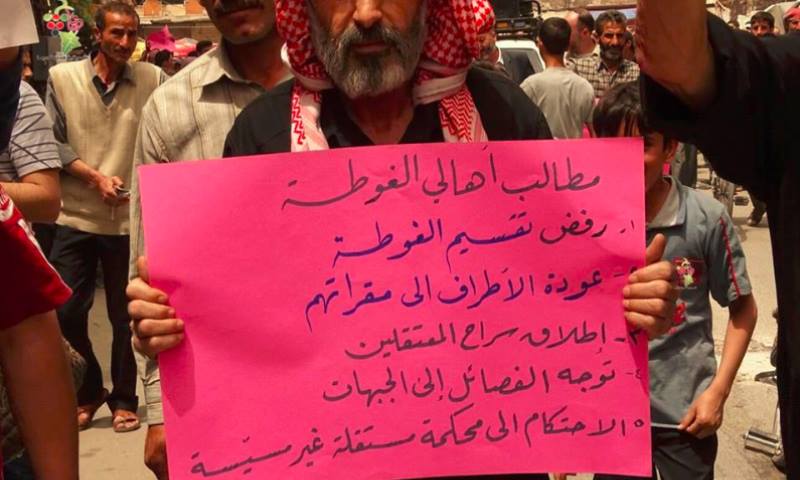 مطالب أهالي الغوطة
١- رفض تقسيم الغوطة
عودة الأطراف الى مقراتهم
٣- إطلاق سراح المعتقلين
٤- توجه الفصائل إلى الجبهات
٥- الاحتكام الى محكمة مستقلة غير مسيّسة